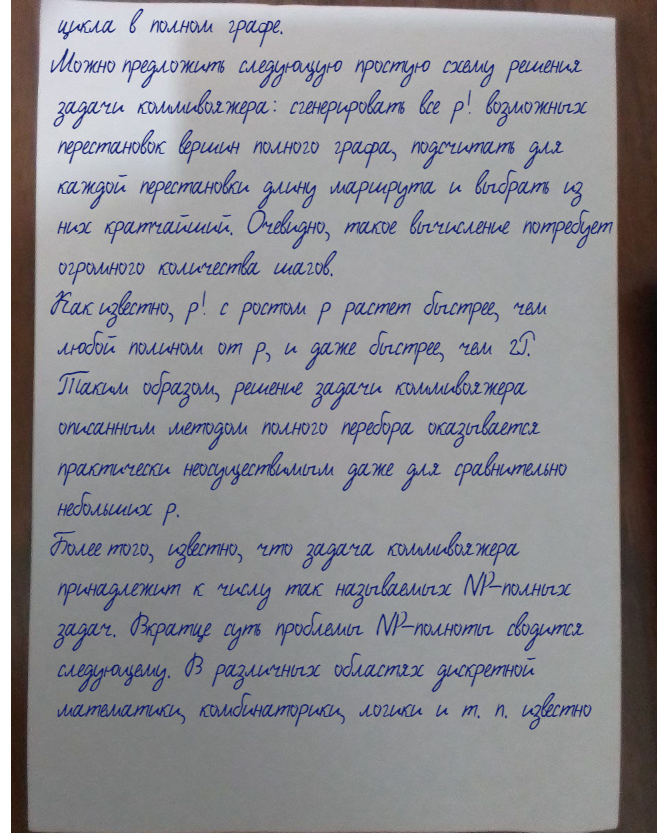 цикла в полном графе.
Можно предложить следующую простую схему решения
задачи коммивояжера: сгенерировать все p! возможных
перестановок вершин полного графа, подсчитать для
каждой перестановки длину маршрута и выбрать из
них кратчайший. Очевидно, такое вычисление потребует
огромного количества шагов.
Как известно, p! с ростом p растет быстрее, чем
любой полином от p, и даже быстрее, чем 2Г.
Таким образом, решение задачи коммивояжера
описанным методом полного перебора оказывается
практически неосуществимым даже для сравнительно
небольших p.
Более того, известно, что задача коммивояжера
принадлежит к числу так называемых NP-полных
задач. Вкратце суть проблемы NP-полноты сводится
следующему. В различных областях дискретной
математики, комбинаторики, логики и т. п. известно